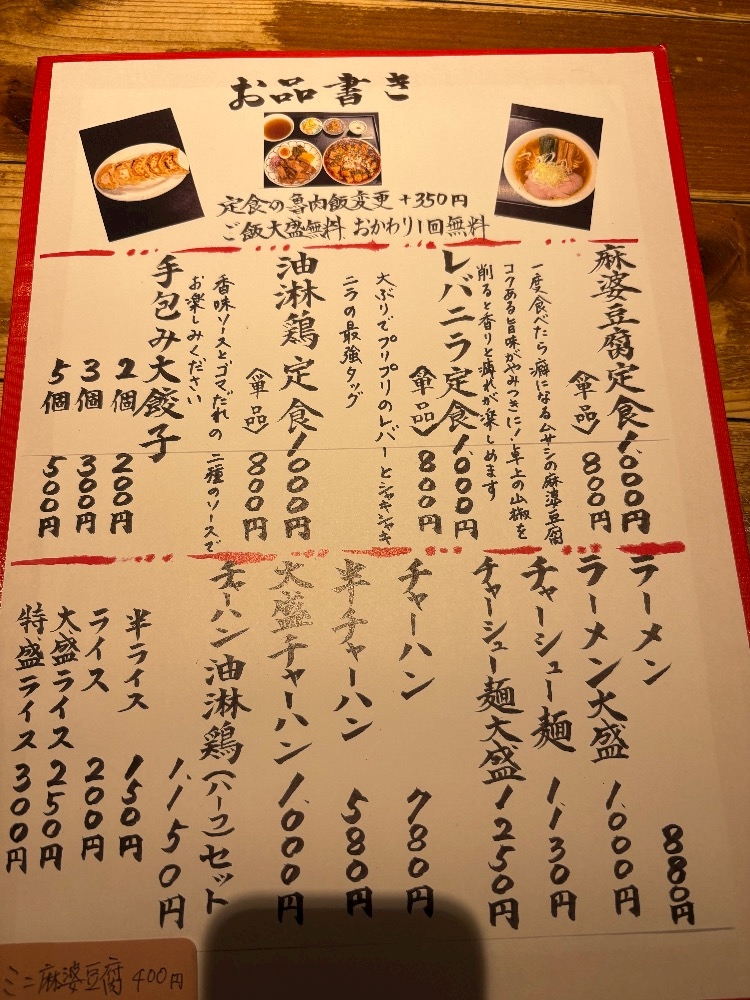 お品書き
定食の魯肉飯変更 +350円
ご飯大盛無料 おかわり1回無料
麻婆豆腐定食 1,000円
(単品) 800円
一度食べたら癖になるムサシの麻婆豆腐
コクある旨味がやみつきに!卓上の山椒を
削ると香りと痺れが楽しめます
レバニラ定食 1,000円
(単品) 800円
大ぶりでプリプリのレバーとシャキシャキ
ニラの最強タッグ
油淋鶏定食 1,000円
(単品) 800円
香味ソースとゴマだれの二種のソースで
お楽しみください
手包み大餃子
2個 200円
3個 300円
5個 500円
ラーメン 880円
ラーメン大盛 1,000円
チャーシュー麺 1,130円
チャーシュー麺大盛 1250円
チャーハン 780円
半チャーハン 580円
大盛チャーハン 1,000円
チャーハン油淋鶏(ハーフ)セット
1,150円
半ライス 150円
ライス 200円
大盛ライス 250円
特盛ライス 300円
ミニ麻婆豆腐 400円